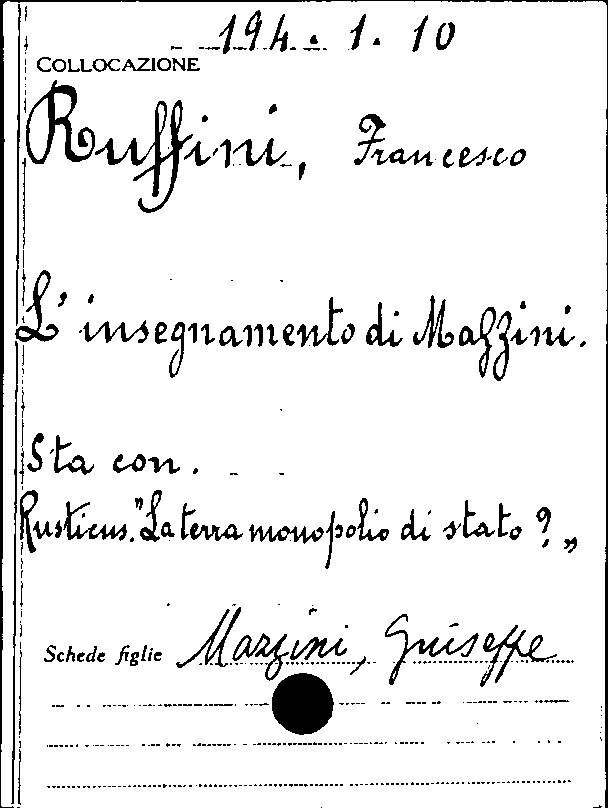 194. 1. 10
COLLOCAZIONE
Ruffini, Francesco
L' insegnamento di Mazzini.
Sta con.
Rusticus. "La terra monopolio di stato? „
Schede figlie Mazzini, Giuseppe